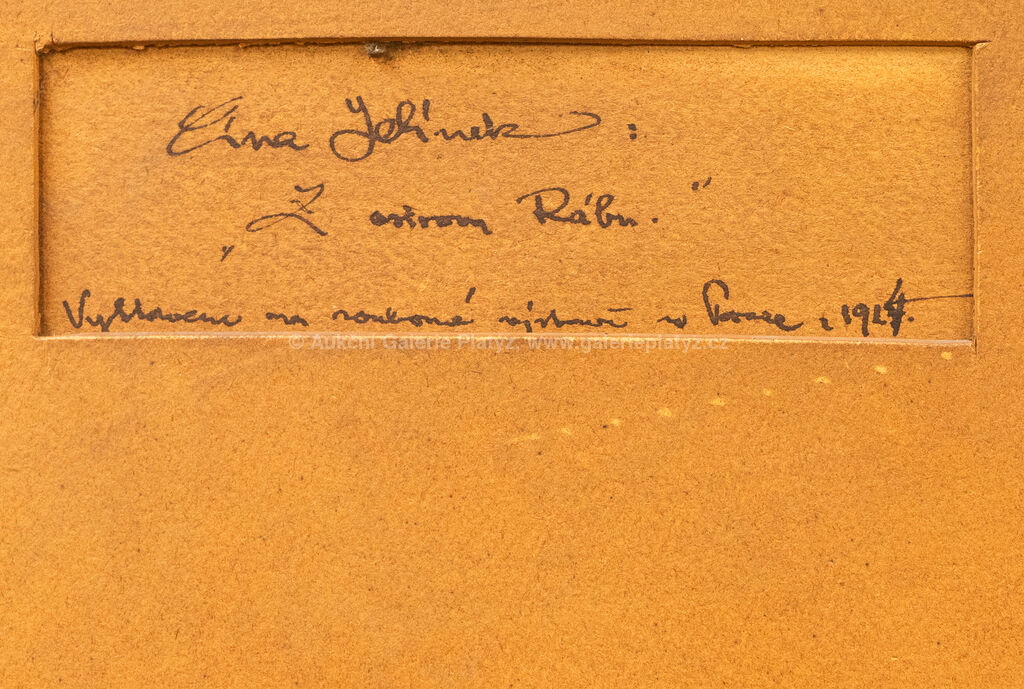 Čína Jelínek :
„Z ostrova Rábu."
Vystaveno na souborné výstavě v Praze r. 1924.
© Aukční Galerie Platýz, www.galerieplatyz.cz